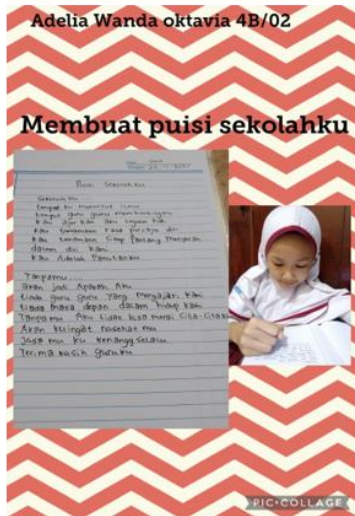 Adelia Wanda oktavia 4B/02
Membuat puisi sekolahku
Puisi Sekolah ku
Sekolah ku
tempat ku menuntut ilmu
tempat guru guru membimbingku
kau ajar kan aku segala hal
kau tanamkan rasa percaya diri
kau tanamkan sikap pantang menyerah
dalam diri kami
kau Adalah Panutanku
Tanpamu....
akan jadi Apakah Aku
tiada guru guru yang mengajari kami
tiada masa depan dalam hidup kami
Tanpa mu Aku tidak bisa meraih cita-citaku
Akan kuingat nasehat mu
Jasa mu ku kenang selalu
Terima kasih guruku
PIC•COLLAGE